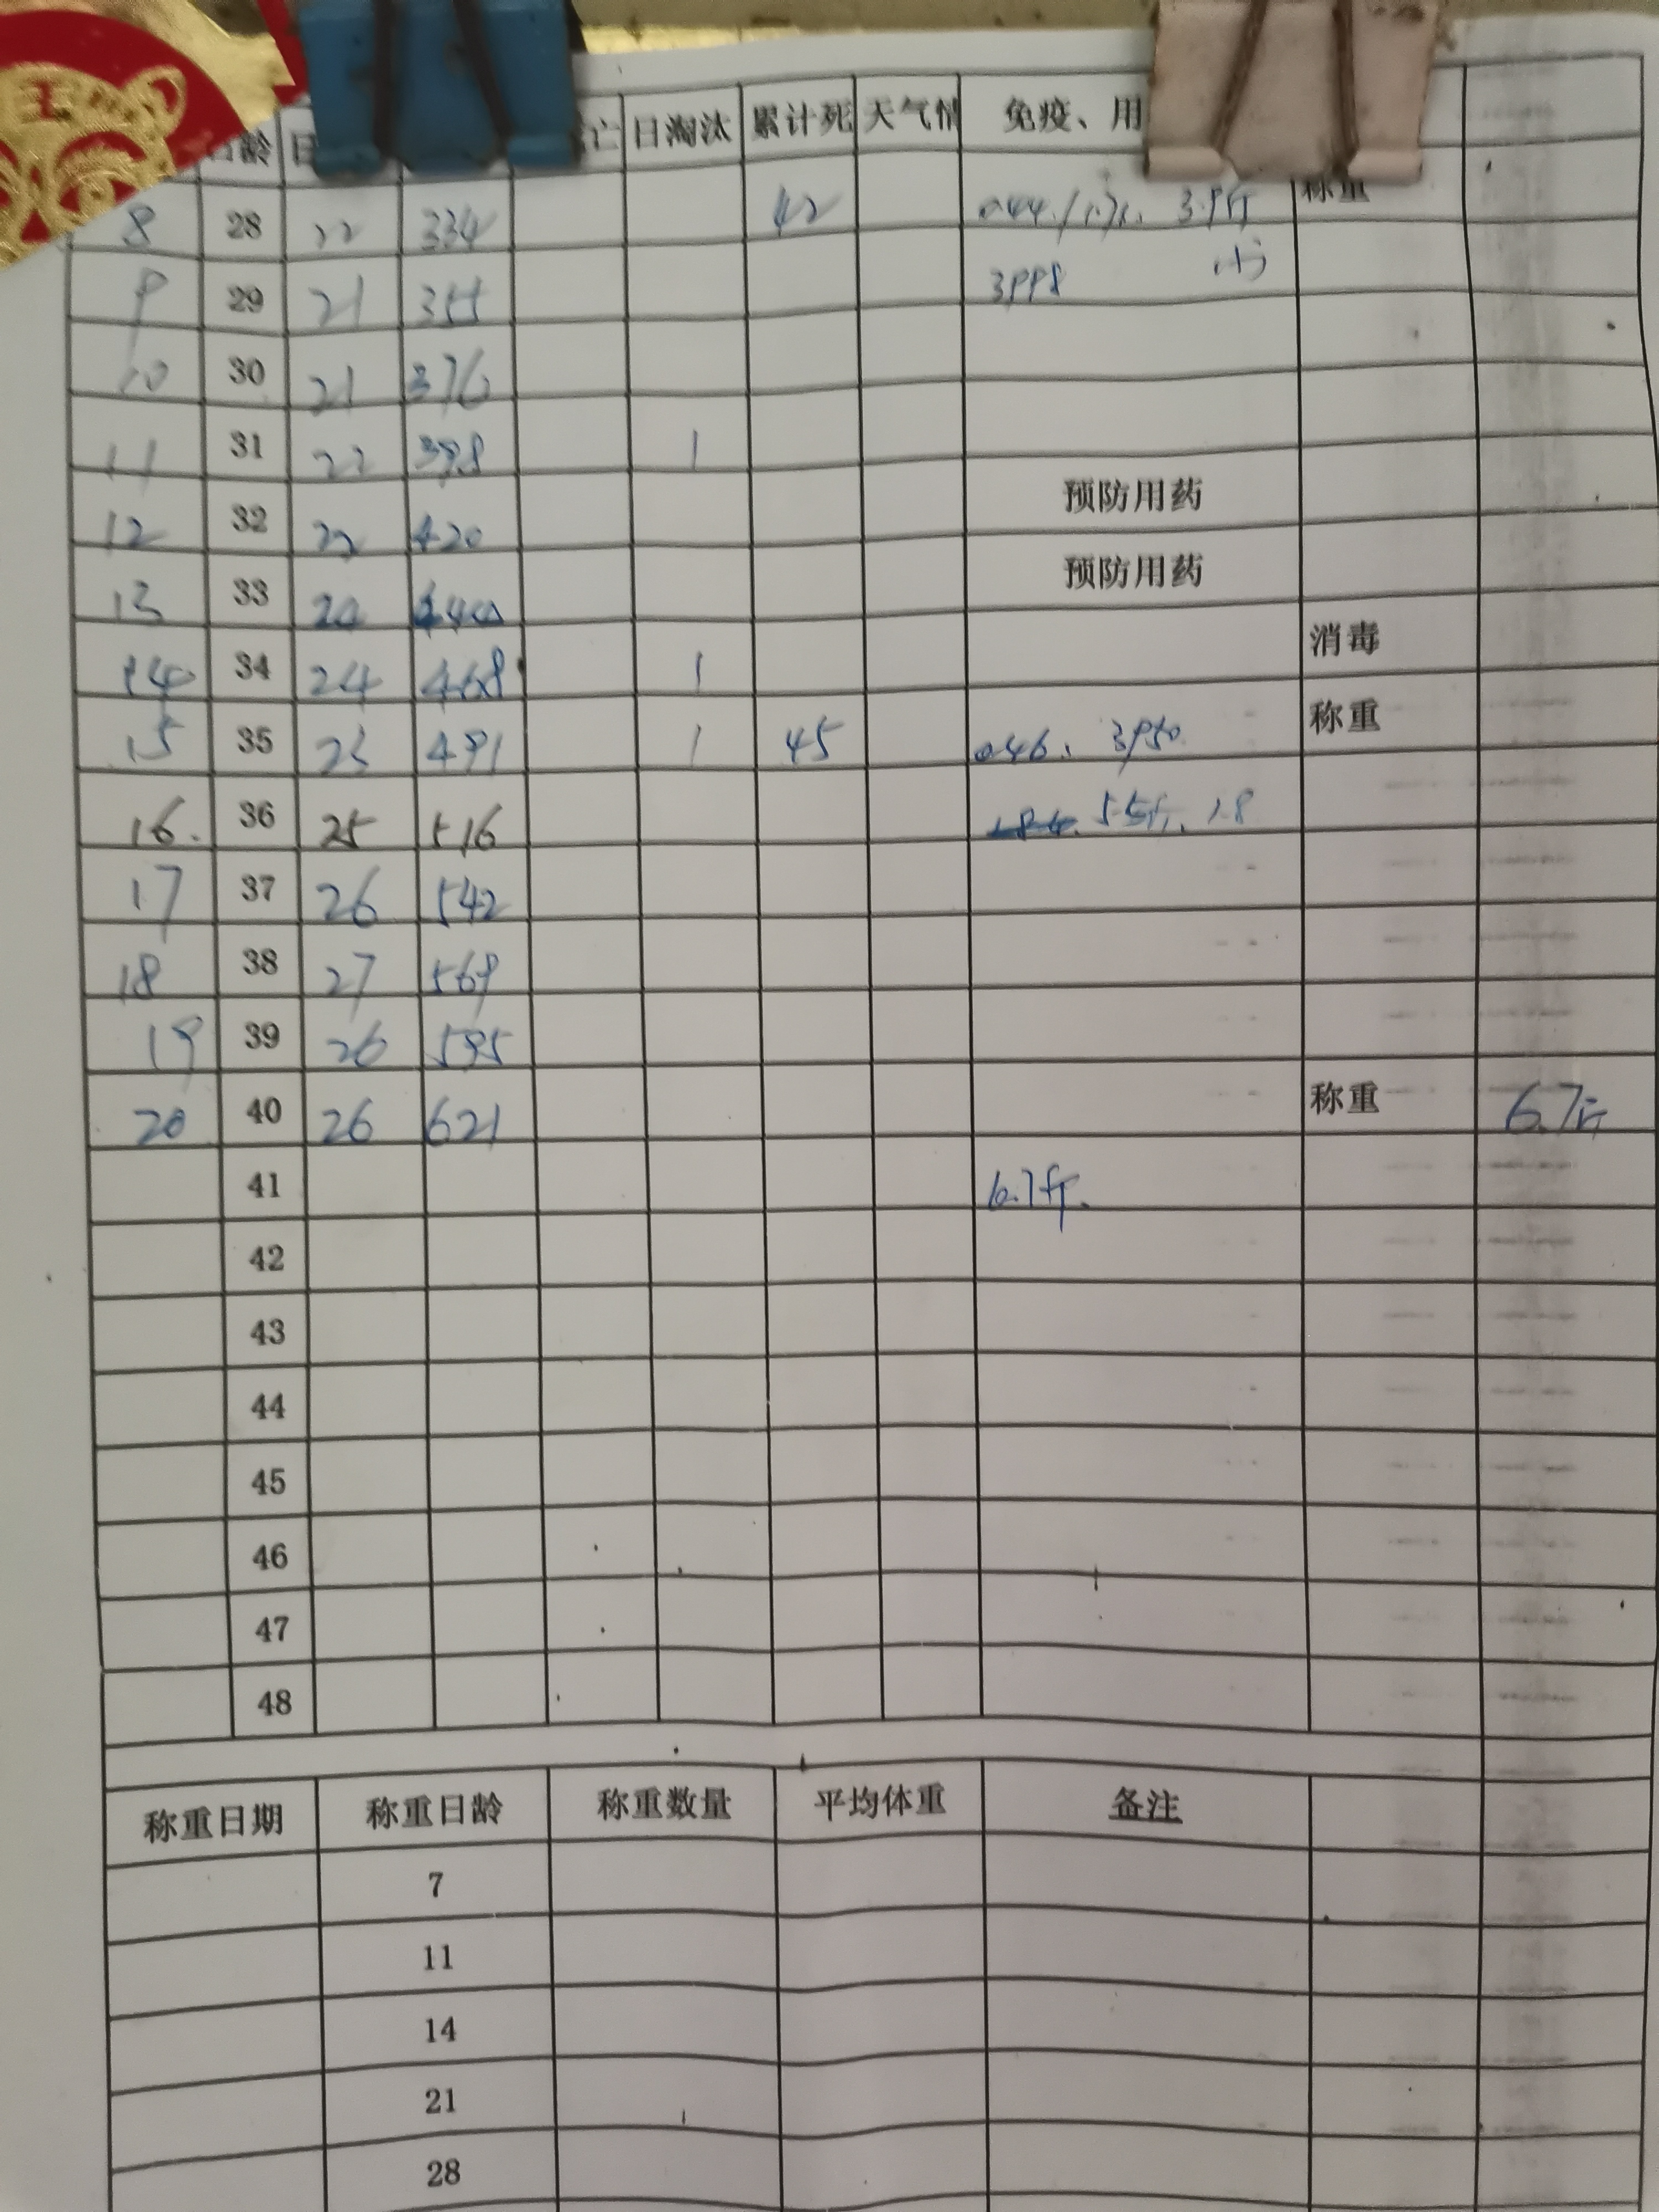 王
日龄 日 亡 日淘汰 累计死 天气情 免疫、用
8 28 22 334 42 3.9斤 称重
9 29 21 355 3998
10 30 21 376
11 31 22 398 1
12 32 22 420 预防用药
13 33 预防用药
14 34 24 468 1 消毒
15 35 23 491 1 45 046. 3950 称重
16. 36 25 516 5.5斤. 1.8
17 37 26 542
18 38 27 569
19 39 26 595
20 40 26 621 称重 6.7斤
41 6.7斤.
42
43
44
45
46
47
48
称重日期 称重日龄 称重数量 平均体重 备注
7
11
14
21
28